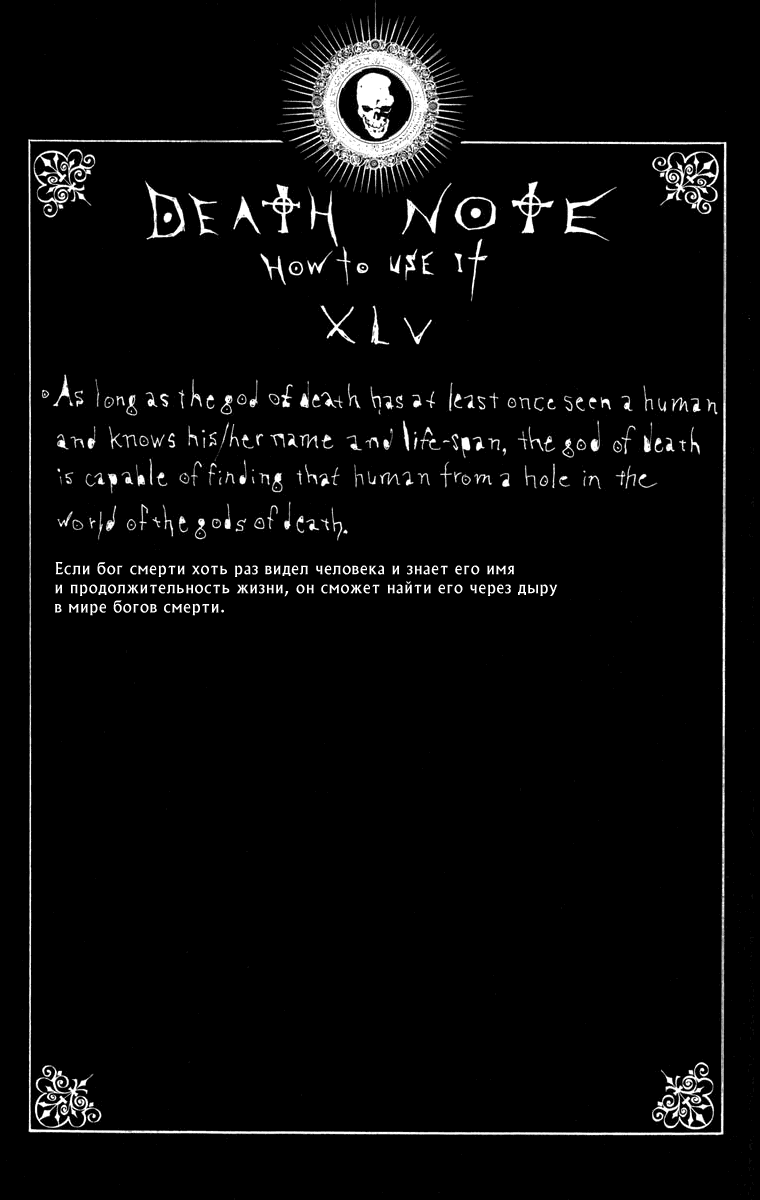 DEATH NOTE
HOW to USE It
XLV
As long as the god of death has at least once seen a human
and knows his/her name and life-span, the god of death
is capable of finding that human from a hole in the
world of the gods of death.
Если бог смерти хоть раз видел человека и знает его имя
и продолжительность жизни, он сможет найти его через дыру
в мире богов смерти.